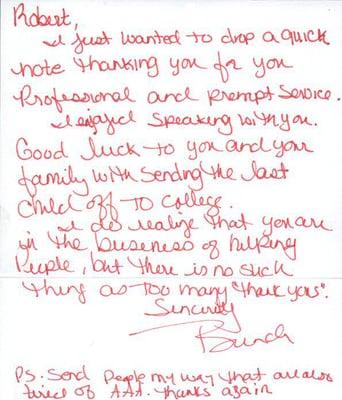 Robert,
I just wanted to drop a quick
note thanking you for you
Professional and prompt service.
I enjoyed speaking with you.
Good luck to you and your
family with sending the last
child off to college.
I do realize that you are
in the business of helping
People, but there is no such
thing as too many "thank yous".
Sincerely
PS. Send People my way that are also
tired of AAA. Thanks again